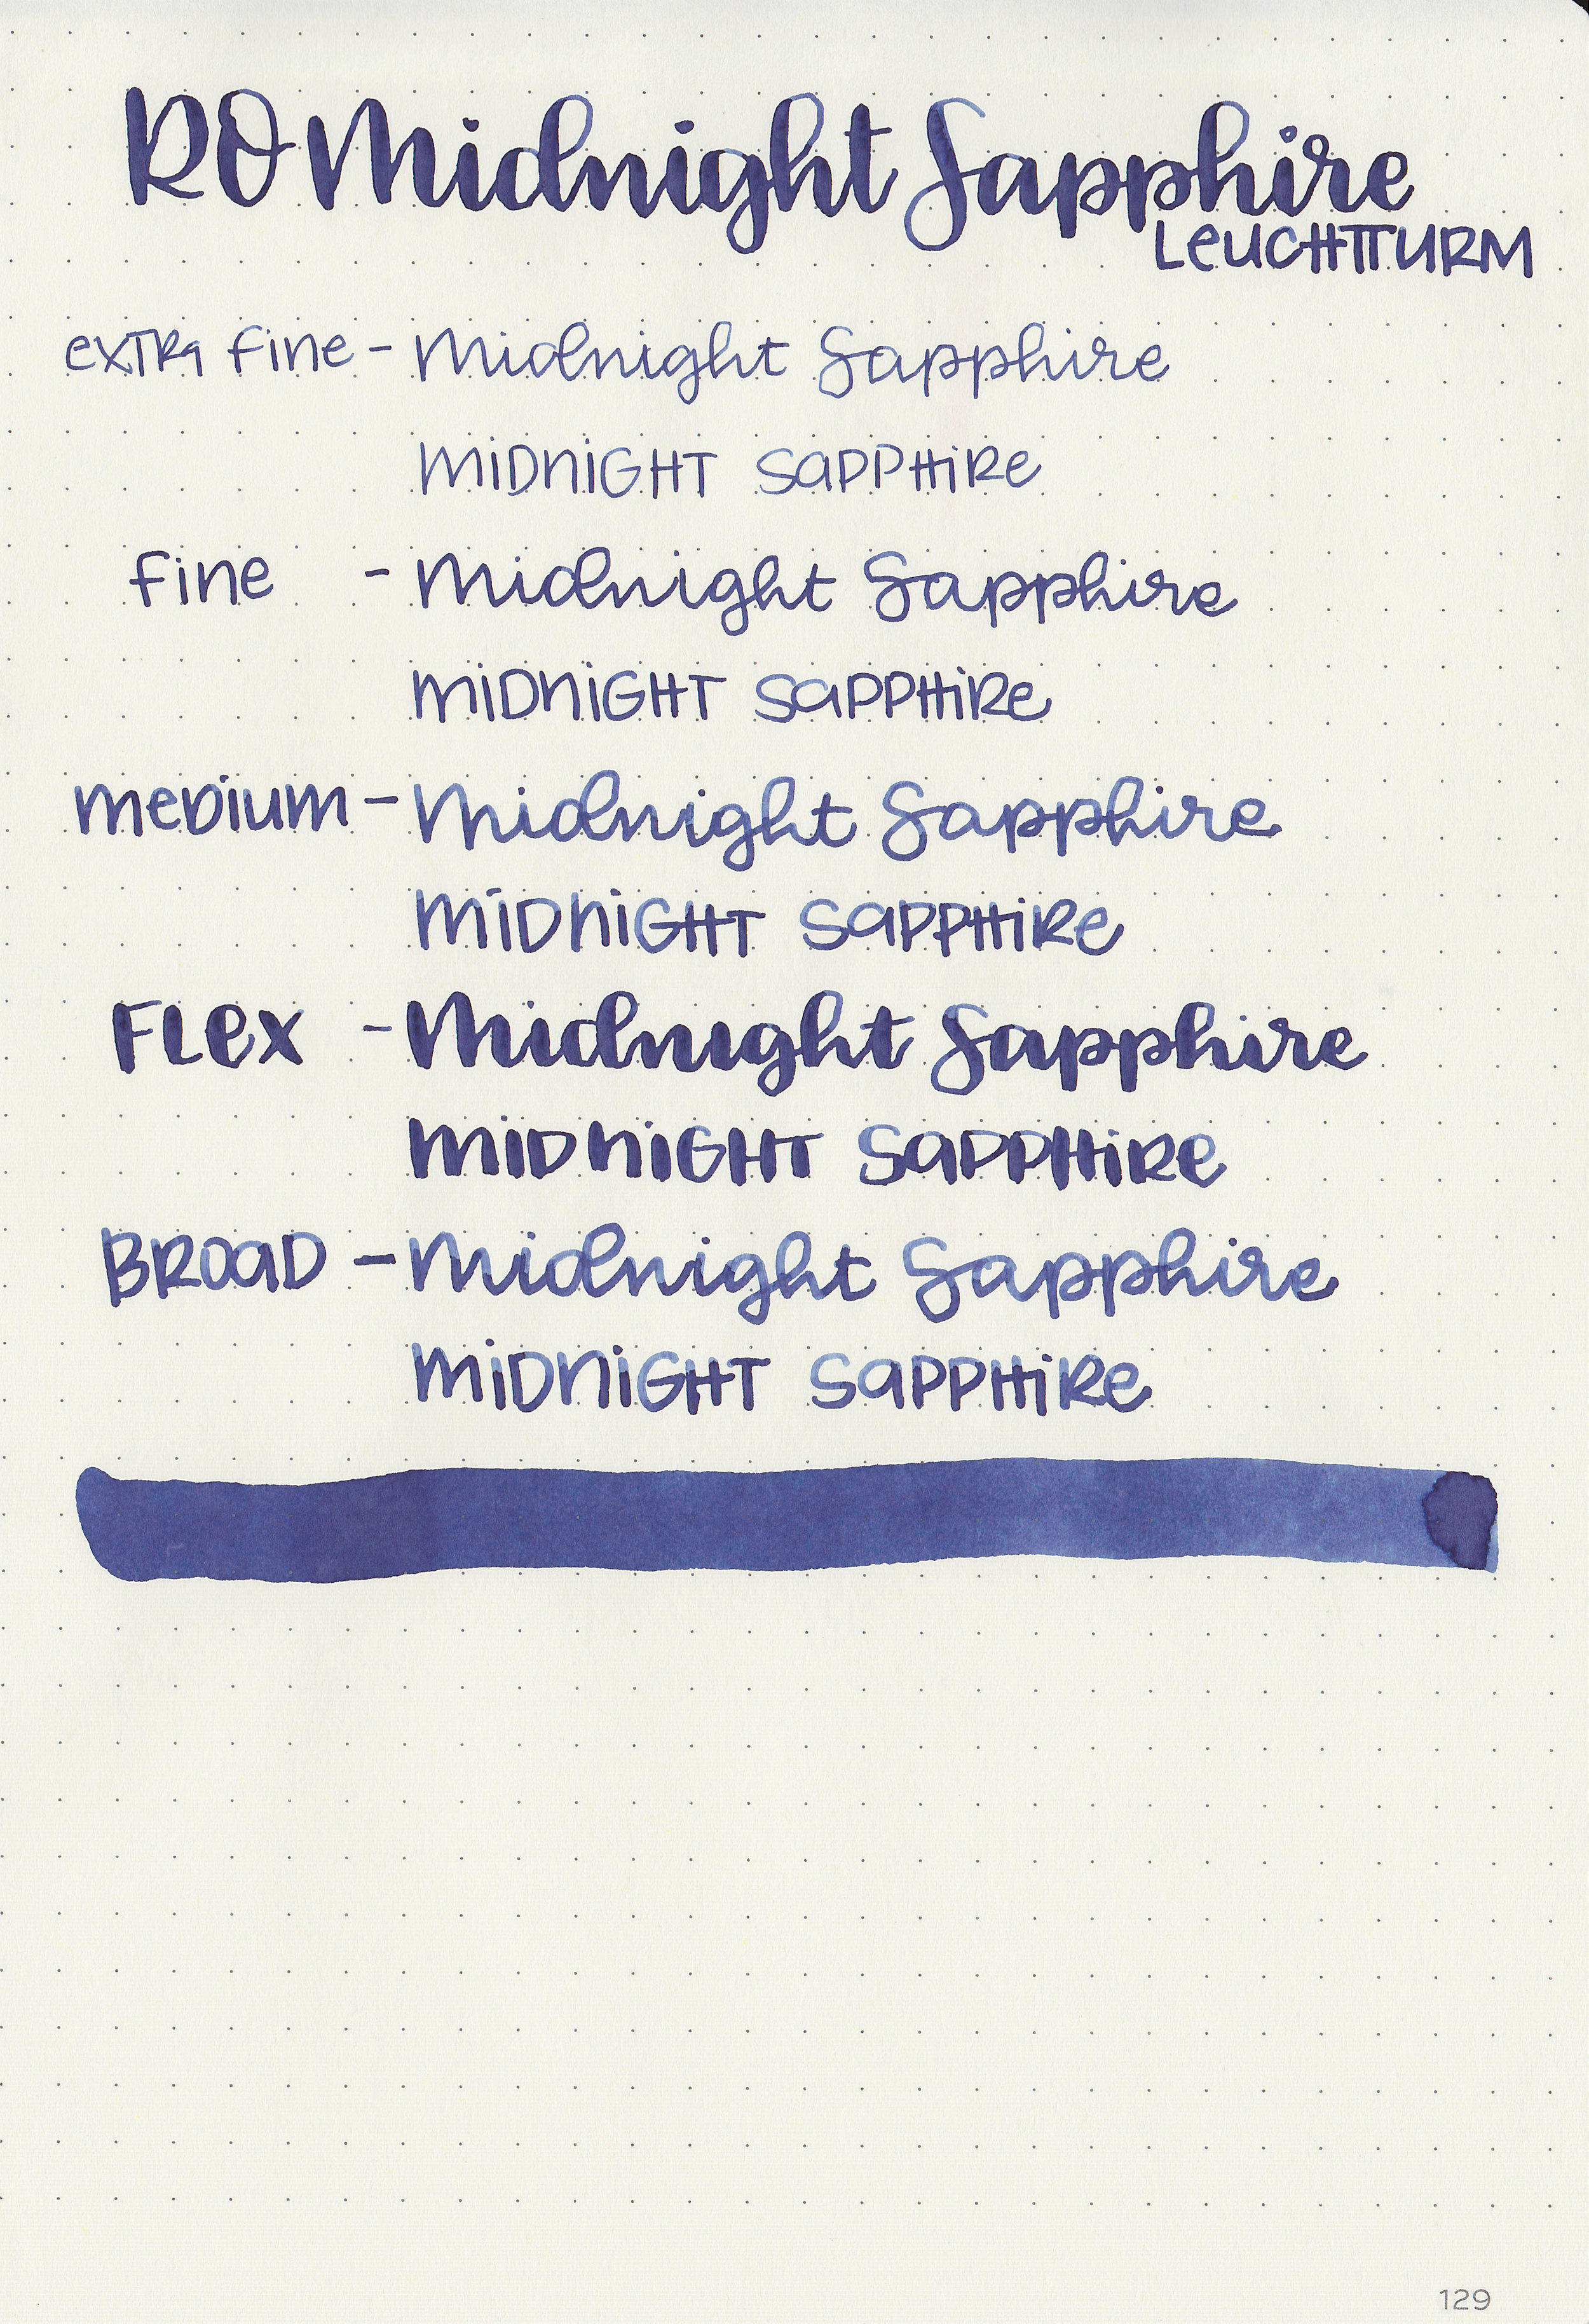 RO Midnight Sapphire
LEUCHTTURM
extra fine - Midnight Sapphire
MIDNIGHT SAPPHIRE
fine - Midnight Sapphire
MIDNIGHT SAPPHIRE
medium - Midnight Sapphire
MIDNIGHT SAPPHIRE
FLEX - Midnight Sapphire
MIDNIGHT SAPPHIRE
BROAD - Midnight Sapphire
MIDNIGHT SAPPHIRE
129